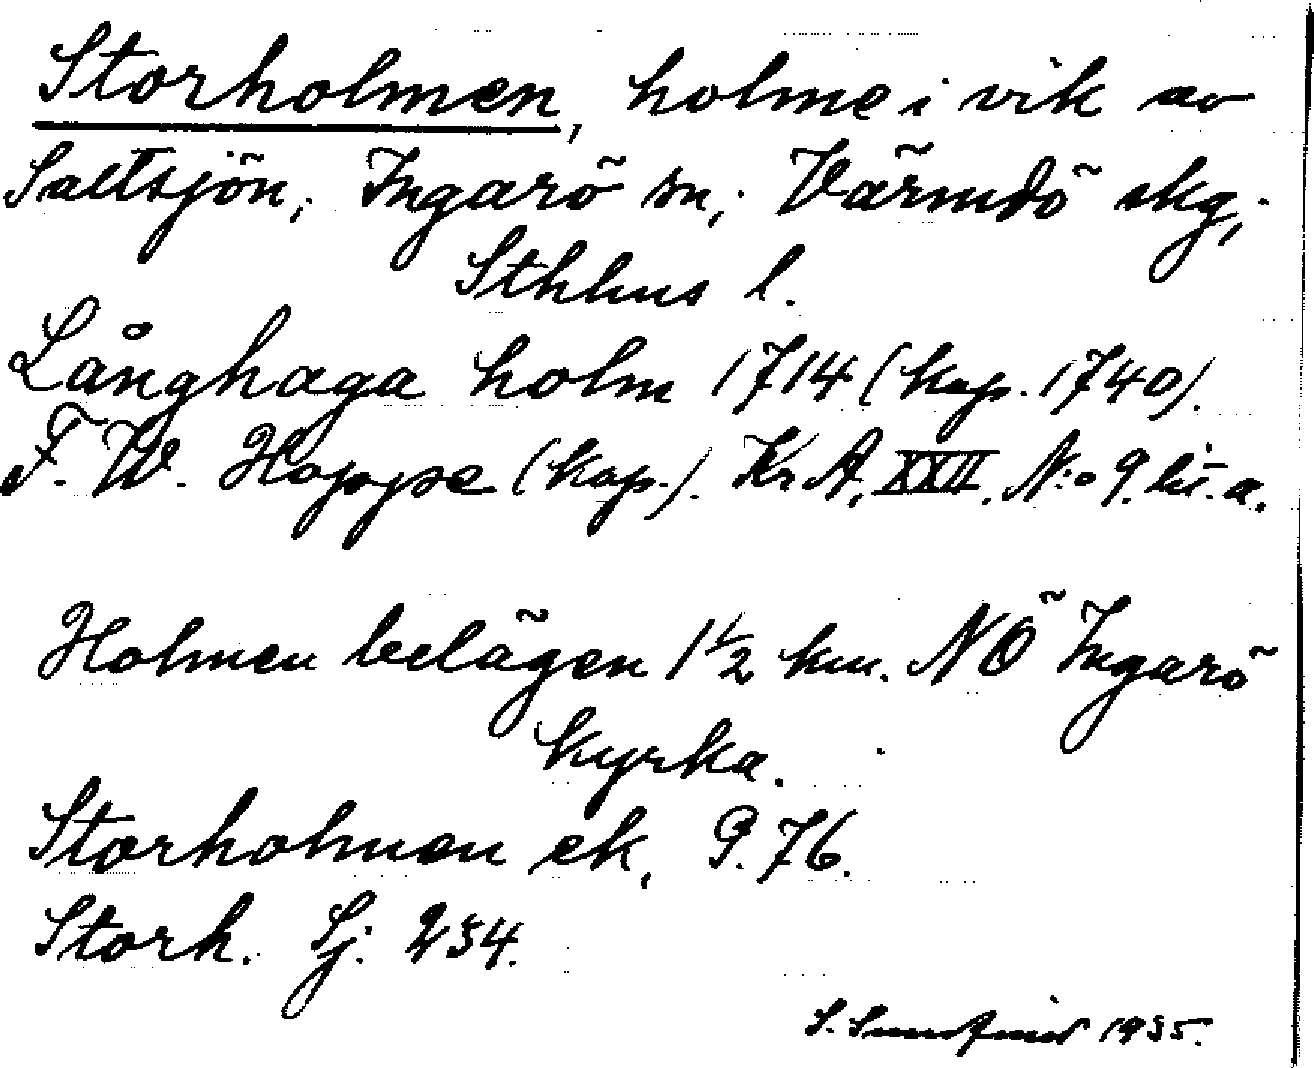 Storholmen, holme i vik av
Saltsjön, Ingarö sn, Värmdö skg,
Sthlms l.
Långhaga holm 1714 (kop. 1740).
F. W. Hoppe (kop.). Kr A, XXII. N:o 9. lit. a.
Holmen belägen 1 1/2 km. NÖ Ingarö
kyrka.
Storholmen ek, 9.76.
Storh. Sj. 234.
S. 1935.